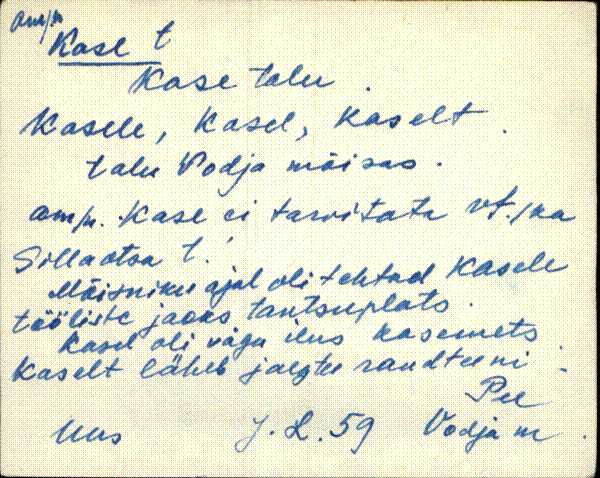 am/n
Kase t
Kase talu.
Kasele, Kasel, Kaselt.
talu Vodja mõisas.
am/n. Kase ei tarvitata vt. ka
Sillaotsa t.
Mõisniku ajal oli tehtud Kasele
tööliste jaoks tantsuplats.
Kasel oli väga ilus kasemets.
Kaselt läheb jalgtee raudteeni.
Pee
Uus J. L. 59 Vodja m.